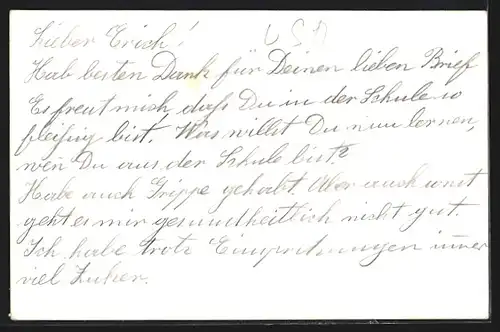 Lieber Erich!
USA
Hab besten Dank für Deinen lieben Brief
Es freut mich, daß Du in der Schule so
fleißig bist. Was willst Du nun lernen,
wen̄ Du aus der Schule bist?
Habe auch Grippe gehabt Aber auch sonst
geht es mir gesundheitlich nicht gut.
Ich habe trotz Einspritzungen im̄er
viel Zucker.